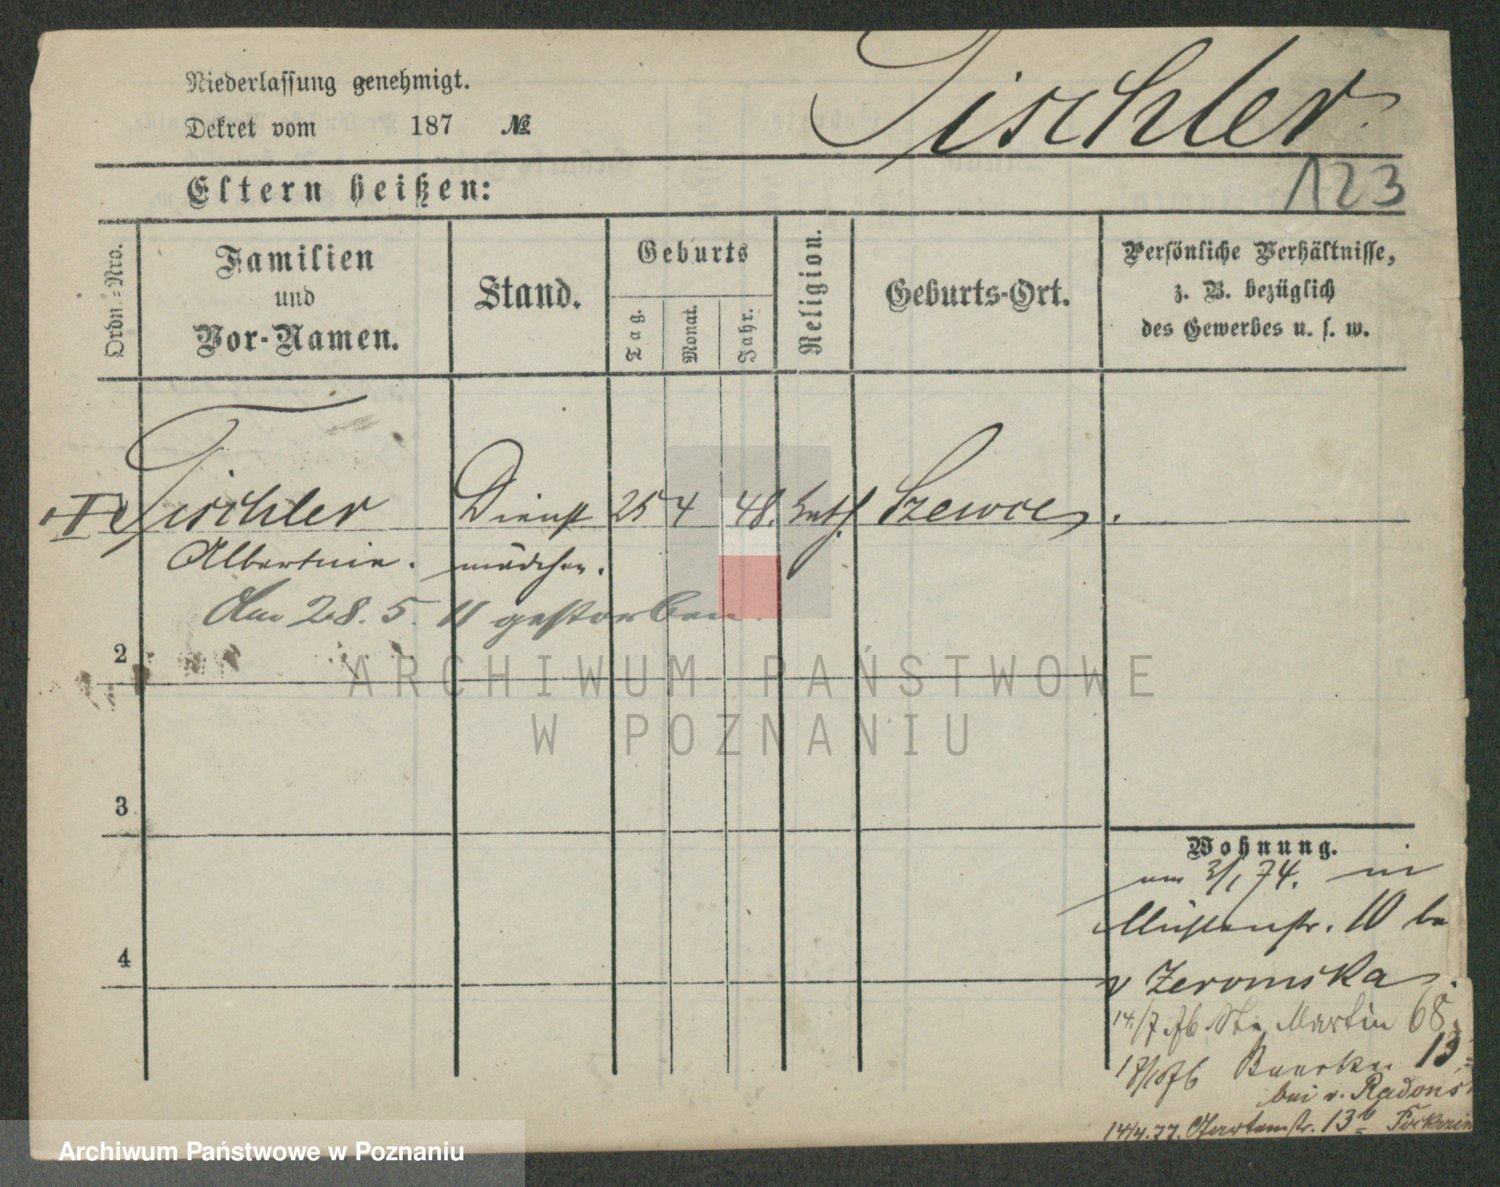 Niederlassung genehmigt.
Dekret vom 187 №
Tischler
123
Eltern heißen:
Ordn.=Nro.
Familien
und
Vor-Namen.
Stand.
Geburts
Tag.
Monat.
Jahr.
Religion.
Geburts-Ort.
Persönliche Verhältnisse,
z. B. bezüglich
des Gewerbes u. s. w.
Tischler Dienst 25 4 48. kath. Szewce.
Albertine. mädchen.
Am 28. 5. 11 gestorben.
2
3
4
Wohnung.
am 3/1 74. in
Mühlenstr. 10 be
v Zeromska.
14./7. 76 St. Martin 68.
18/10 76 13
bei v. Radons
14/4. 77. Gartenstr. 13b
ARCHIWUM PAŃSTWOWE
W POZNANIU
Archiwum Państwowe w Poznaniu